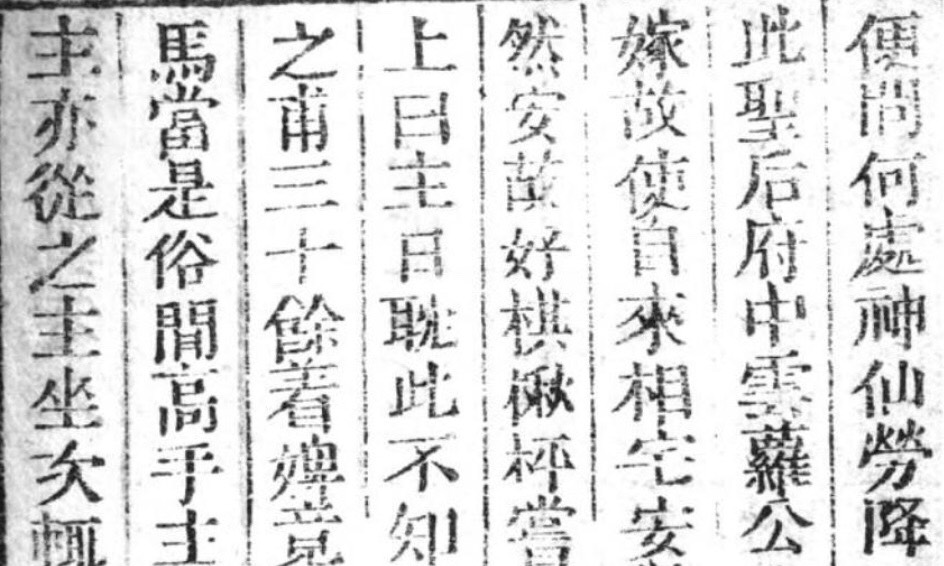 便問何處神仙勞降
此聖后府中雲蘿公
嫁故使自來相宅安
然安故好棋楸枰嘗
上曰主日耽此不知
之甫三十餘着婢竟
馬當是俗間高手主
主亦從之主坐次輒